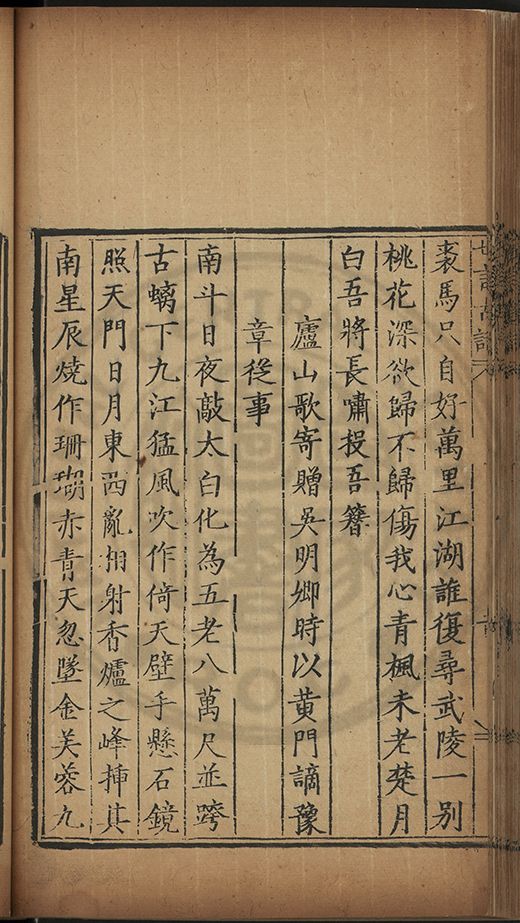 裘馬只自好萬里江湖誰復尋武陵一別
桃花深欲歸不歸傷我心青楓未老楚月
白吾將長嘯投吾簪
廬山歌寄贈吳明卿時以黃門謫豫
章從事
南斗日夜敲太白化為五老八萬尺並跨
古螭下九江猛風吹作倚天壁手懸石鏡
照天門日月東西亂相射香爐之峰揷其
南星辰燒作珊瑚赤青天忽墜金芙蓉九